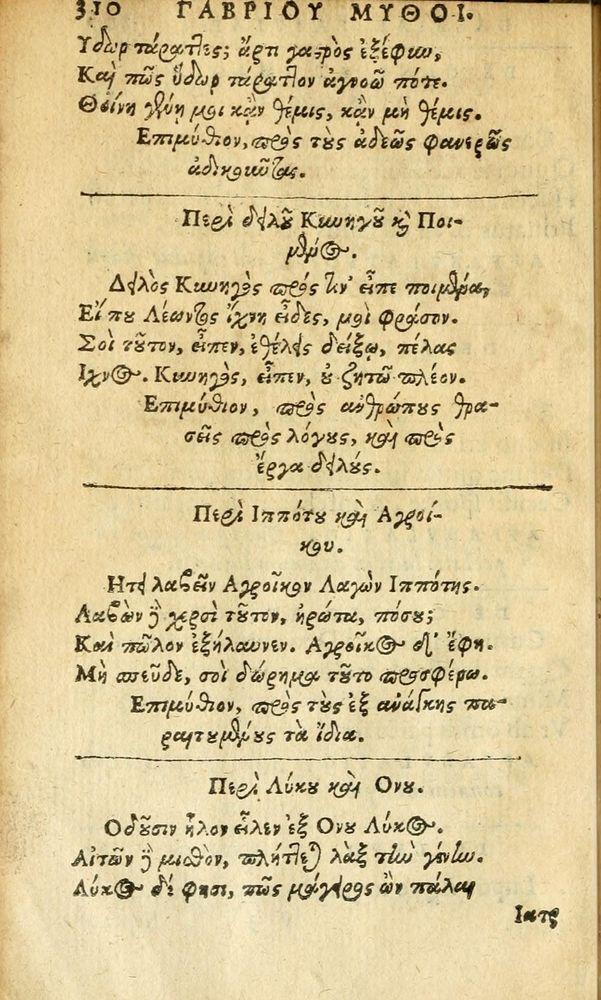 310 ΓΑΒΡΙΟΥ ΜΥΘΟΙ.
Υδωρ τάραττες; ἄρτι γαςρὸς ἐξέφυν,
Καὶ πῶς ὕδωρ τάραττον ἀγνοῶ πότε.
Θοίνη γένῃ μοι κἂν θέμις, κἂν μὴ θέμις.
Επιμύθιον, πρὸς τοὺς ἀδεῶς φανερῶς
ἀδικοῦντας.
Περὶ δειλοῦ Κυνηγοῦ καὶ Ποι-
μένος.
Δειλὸς Κυνηγὸς πρός τιν' εἶπε ποιμένα,
Εἴ που Λέοντος ἴχνη εἶδες, μοὶ φράσον.
Σοὶ τοῦτον, εἶπεν, ἐθέλεις δείξω, πέλας
Ιχνος. Κυνηγὸς, εἶπεν, οὐ ζητῶ πλέον.
Επιμύθιον, πρὸς ἀνθρώπους θρα-
σεῖς πρὸς λόγους, καὶ πρὸς
ἔργα δειλούς.
Περὶ Ιππότου καὶ Αγροί-
κου.
Ητει λαβεῖν Αγροῖκον Λαγὼν Ιππότης.
Λαβὼν δὲ χερσὶ τοῦτον, ἠρώτα, πόσου;
Καὶ πῶλον ἐξήλαυνεν. Αγροῖκος δ' ἔφη.
Μὴ σπεῦδε, σοὶ δώρημα τοῦτο προσφέρω.
Επιμύθιον, πρὸς τοὺς ἐξ ἀνάγκης πα-
ραιτουμένους τὰ ἴδια.
Περὶ Λύκου καὶ Ονου.
Οδοῦσιν ἧλον εἷλεν ἐξ Ονου Λύκος.
Αἰτῶν δὲ μισθὸν, πλήττεται λὰξ τὴν γένυν.
Λύκος δέ φησι, πῶς μάγειρος ὢν πάλαι
Ιατρ